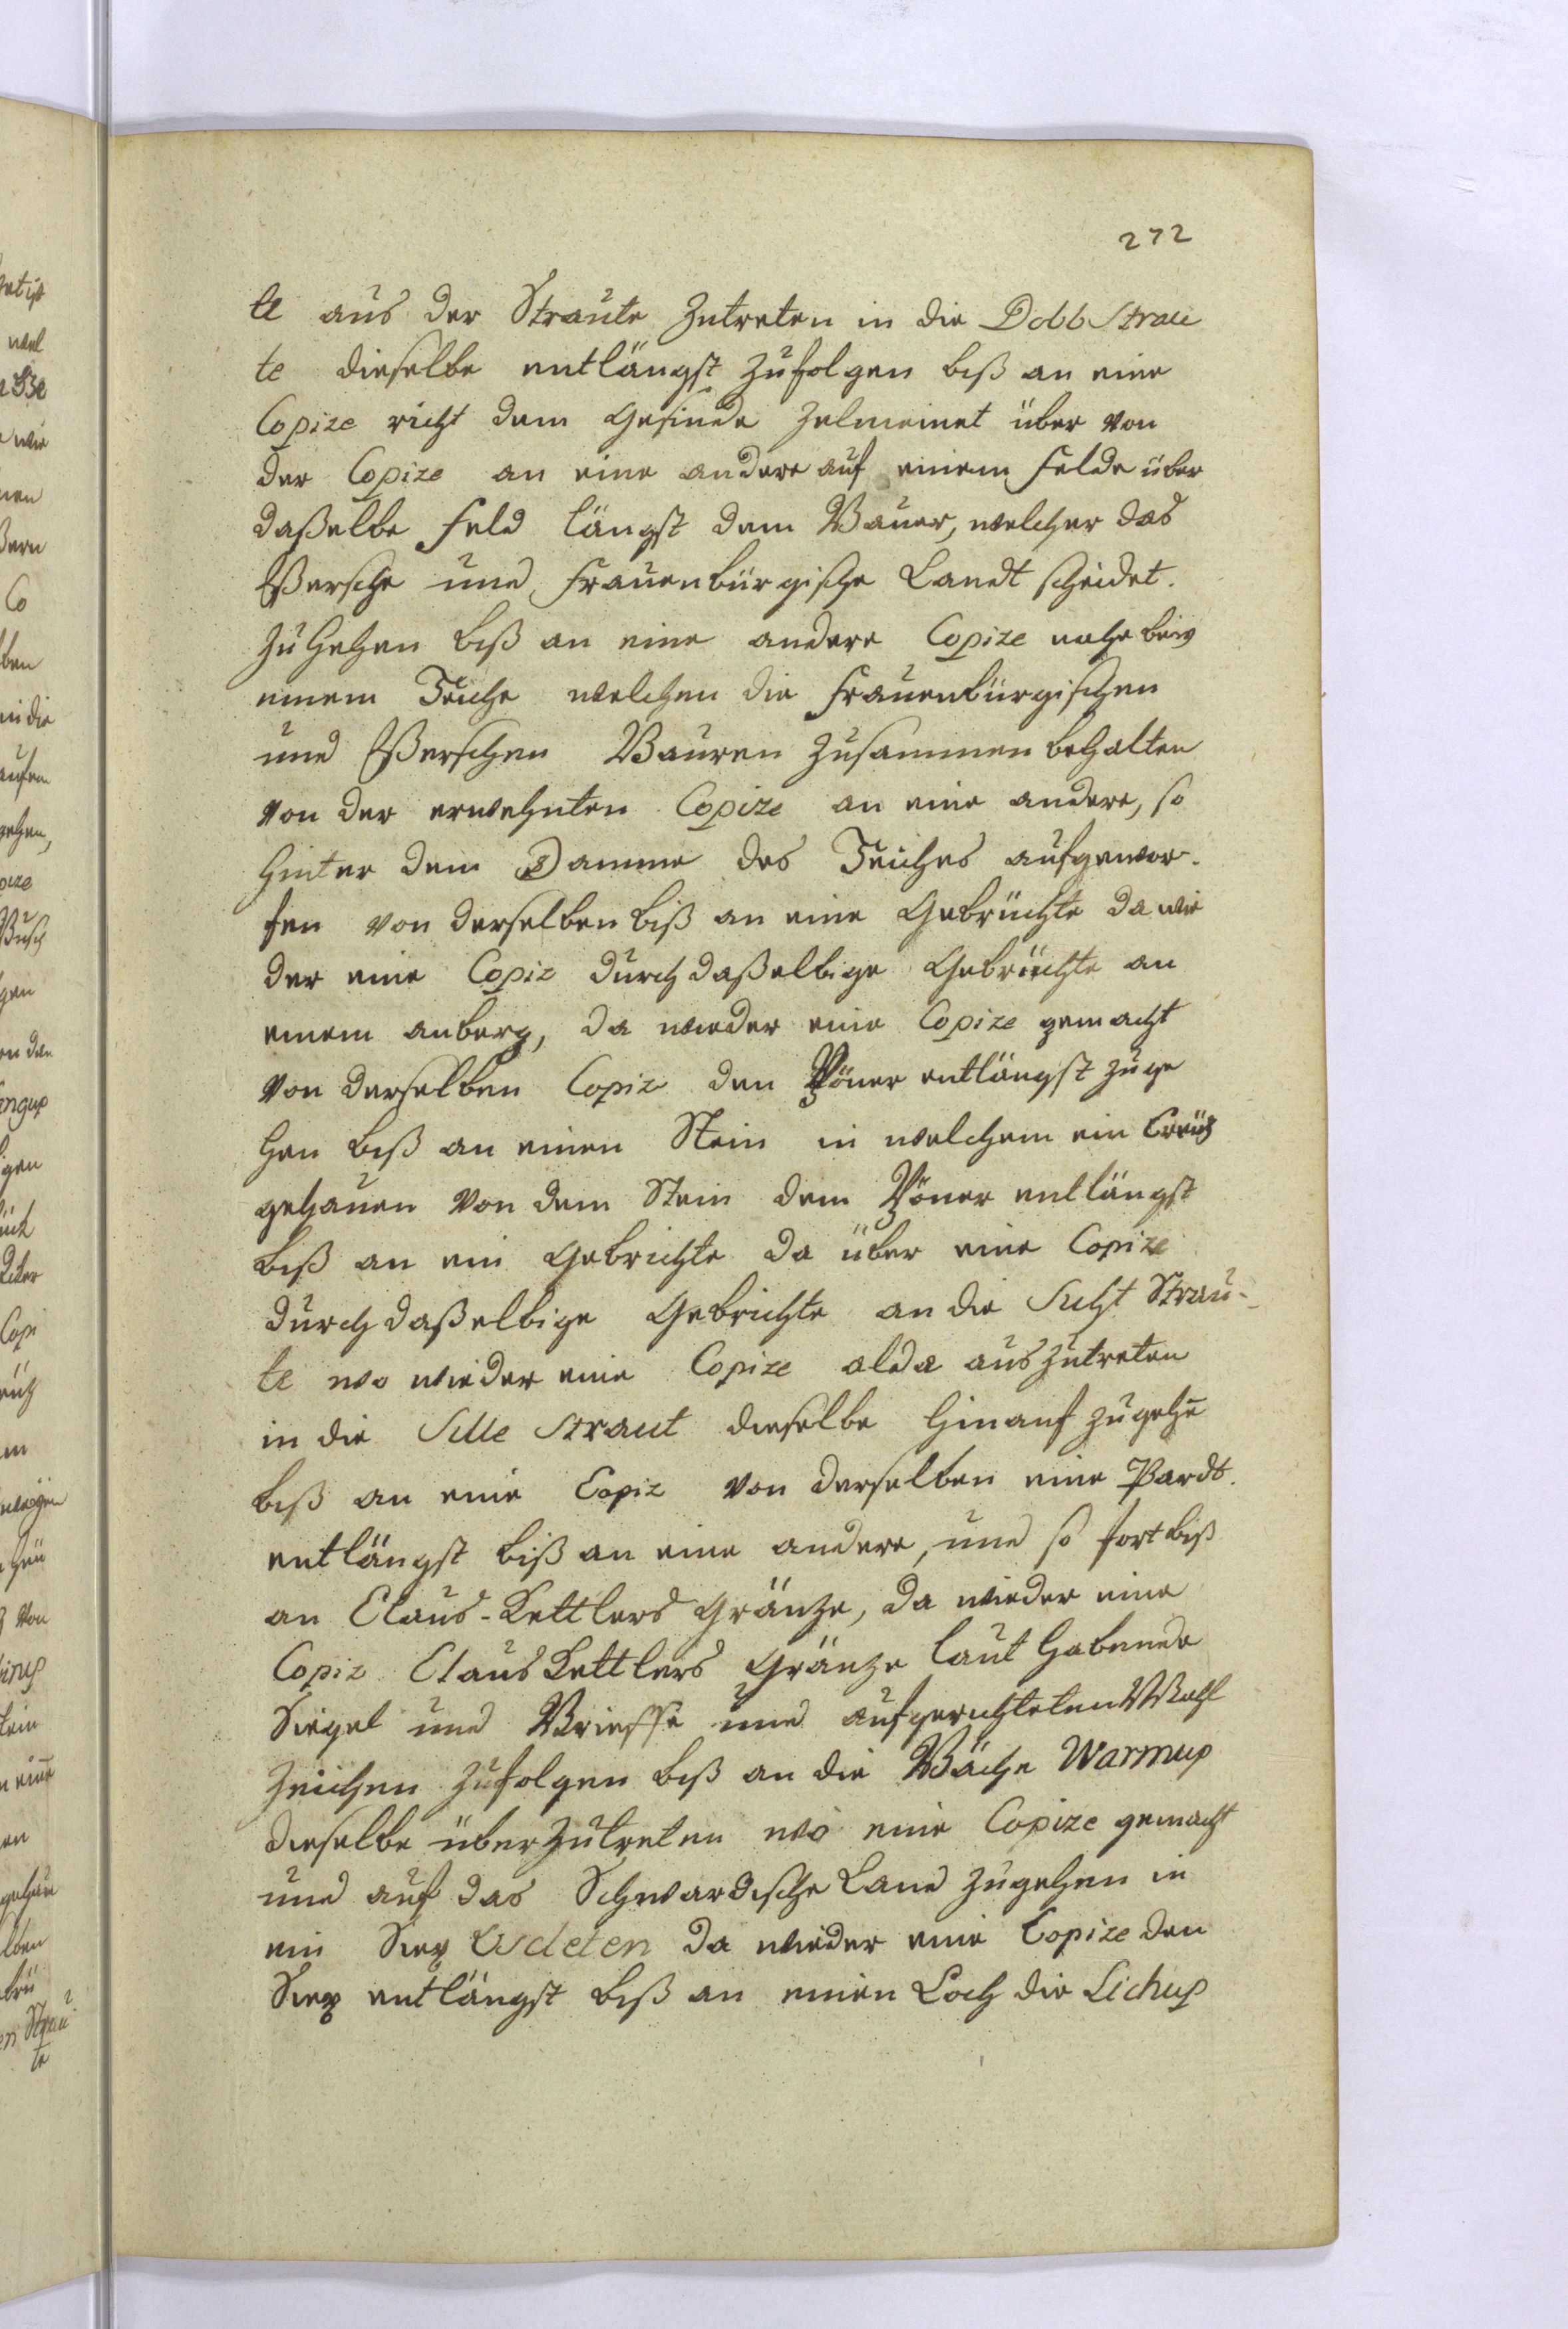 272
te aus der Straute zutreten in die Dobb Strau
te dieselbe entlängst zufolgen biß an eine
Copize richt dem Gesinde Zelmeinet über von
der Copize an eine andere auf einem Felde über
daßelbe Feld längst dem Bauer, welcher das
Eßersche und Frauenburgische Landt scheidet.
zu gehen biß an eine andere Copize nahe beiy
einem Teiche welchen die Frauenburgischen
und Eßerschen Bauren zusammen behalten
von der erwehnten Copize an eine andere, so
hinter dem Damme des Teiches aufgewor-
fen von derselben biß an eine Gebrüchte da wie
der eine Copiz durch daßelbige Gebrüchte an
einem anberg, da wieder eine Copize gemacht
von derselben Copiz den entlängst zu ge
hen biß an einen Stein in welchem ein Creütz
gehauen von dem Stein dem entlängst
biß an ein Gebrichte da über eine Copize
durch daßelbige Gebrichte an die Sucht Strau-
te wo wieder eine Copize alda auszutreten
in die Sille Straut dieselbe hinauf zu gehn
biß an eine Copiz von derselben eine Pardt.
entlängst biß an eine andere, und so fort biß
an Claus-Kettlers Gränze, da wieder eine
Copiz Claus Kettlers Gränze laut habende
Siegel und Brieffe und aufgerichteten Mahl
zeichen zufolgen biß an die Bäche Warmup
dieselbe überzutreten wo eine Copize gemacht
und auf das Schwardische Land zugehen in
ein Siex Usdeten da wieder eine Copize den
Siex entlängst biß an einen Loch die Lichup